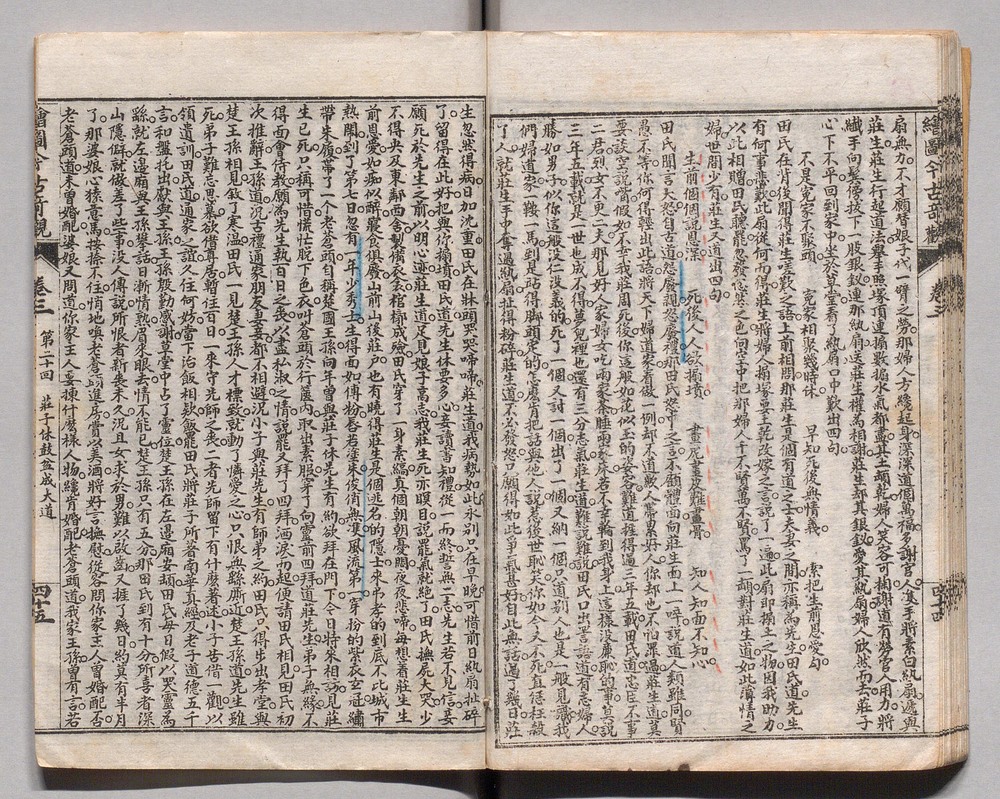 繪圖今古奇觀 卷三 四十四
扇無力不才願替娘子代一臂之勞那婦人方纔起身深深道個萬福多謝官人隻手將素白紈扇遞與
莊生莊生行起道法舉手照塚頂連搧數搧水氣都盡其土頓乾婦人笑容可掬謝道有勞官人用力將
纖手向鬢傍拔下一股銀釵連那紈扇送莊生權為相謝莊生却其銀釵受其紈扇婦人欣然而去莊子
心下不平回到家中坐於草堂看了紈扇口中歎出四句
不是冤家不聚頭 冤家相聚幾時休 早知死後無情義 索把生前恩愛勾
田氏在背後聞得莊生嗟歎之語上前相問那莊生是個有道之士夫妻之間亦稱為先生田氏道先生
有何事感歎此扇從何而得莊生將婦人搧塚要土乾改嫁之言說了一遍此扇即搧土之物因我助力
以此相贈田氏聽罷忽發忿然之色向空中把那婦人千不賢萬不賢罵了一頓對莊生道如此薄情之
婦世間少有莊生又道出四句
生前個個說恩深 死後人人欲搧墳 畫虎畫皮難畫骨 知人知面不知心
田氏聞言大怒自古道怨廢親怒廢禮那田氏怒中之言不顧體面向莊生面上一啐說道人類雖同賢
愚不等你何得輕出此語將天下婦道家看做一例却不道歉人帶累好人你却也不怕罪過莊生道莫
要談空說嘴假如不幸我莊周死後你這般如花似玉的年紀難道捱得過三年五載田氏道忠臣不事
二君烈女不更二夫那見好人家婦女吃兩家茶睡兩家床若不幸輪到我身上這樣沒廉恥的事莫說
三年五載就是一世也成不得夢兒裡也還有三分志氣莊生道難說難說田氏口出詈語道有志婦人
勝如男子似你這般沒仁沒義的死了一個又討一個出了一個又納一個只道別人也是一般見識我
們婦道家一鞍一馬到是站得脚頭定的怎麼肯把話與他人說惹後世恥笑你如今又不死直恁枉殺
了人就莊生手中奪過紈扇扯得粉碎莊生道不必發怒只願得如此爭氣甚好自此無話過了幾日莊
生忽然得病日加沈重田氏在牀頭哭哭啼啼莊生道我病勢如此永別只在早晚可惜前日紈扇扯碎
了留得在此好把與你搧墳田氏道先生休要多心妾讀書知禮從一而終誓無二志先生若不見信妾
願死於先生之前以明心迹莊生道足見娘子高志我莊生死亦瞑目說罷氣就絕了田氏撫屍大哭少
不得央及東鄰西舍製備衣衾棺槨成殮田氏穿了一身素縞真個朝朝憂悶夜夜悲啼每想着莊生生
前恩愛如痴似醉寢食俱廢山前山後莊戶也有曉得莊生是個逃名的隱士來弔者的到底不比城市
熱鬧到了第七日忽有一年少秀士生得面如傅粉唇若塗朱俊俏無雙風流第一穿扮的紫衣玄冠繡
帶朱履帶了一個老蒼頭自稱楚國王孫向年曾與莊子休先生有約欲拜在門下今日特來相訪見莊
生已死只稱可惜慌忙脫下色衣叫蒼頭於行囊內取出素服穿了向靈前四拜道莊先生弟子無緣不
得面會侍教願為先生執百日之喪以盡私淑之情說罷又拜了四拜洒淚而起便請田氏相見田氏初
次推辭王孫道沉古禮通家朋友妻妾都不相避況小子與莊先生有師弟之約田氏只得步出孝堂與
楚王孫相見叙了寒溫田氏一見楚王孫人才標致就動了憐愛之心只恨無緣廝近楚王孫道先生雖
死弟子難忘思慕欲借尊居暫住百日一來守先師之喪二者先師留下有什麼著述小子告借一觀以
領遺訓田氏道通家之誼久住何妨當下治飯相款飯罷田氏將莊子所著南華真經及老子道德五千
言和盤托出獻與王孫王孫殷勤感謝草堂中占了靈位楚王孫在左邊廂安頓田氏每日假以哭靈為
繇就左邊廂與王孫攀話日漸情熟眉來眼去情不能已楚王孫只有五分那田氏到有十分所喜者深
山隱僻就做差了些事沒人傳說所恨者新喪未久況且女求於男難以啟齒又捱了幾日約莫有半月
了那婆娘心猿意馬按捺不住悄地喚老蒼頭進房賞以美酒將好言撫慰從容問你家主人曾婚配否
老蒼頭道未曾婚配婆娘又問道你家主人要揀什麼樣人物纔肯婚配老蒼頭道我家王孫曾有言若
繪圖今古奇觀 卷三 第二十回 莊子休鼓盆成大道 四十五